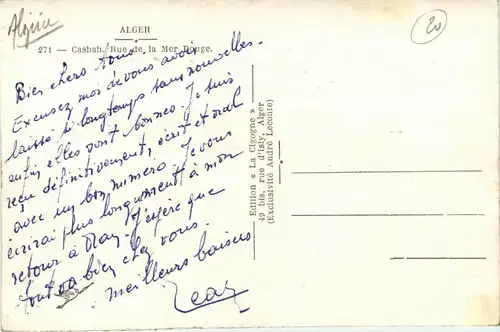 Algérie
ALGER
20
271 — Casbah. Rue de la Mer Rouge.
Bien chers tous
Excusez moi de vous avoir
laissé si longtemps sans nouvelles.
enfin elles sont bonnes. Je suis
reçu définitivement, écrit et oral
avec un bon numéro. Je vous
écrirai plus longuement à mon
retour à Oran. J'espère que
tout va bien chez vous.
Meilleurs baisers
Jean
Edition « La Cigogne »
49 bis, rue d'Isly, Alger
(Exclusivité André Leconte)